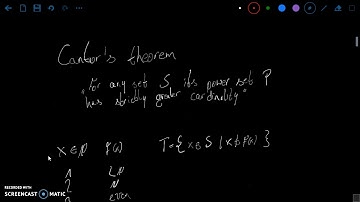 Cantor's theorem
"For any set S its power set P
has strictly greater cardinality"
x ∈ ℕ f(x) T = { x ∈ S | x ∉ f(x) }
1 2ℕ
2 ℕ
3 even
RECORDED WITH
SCREENCAST MATIC